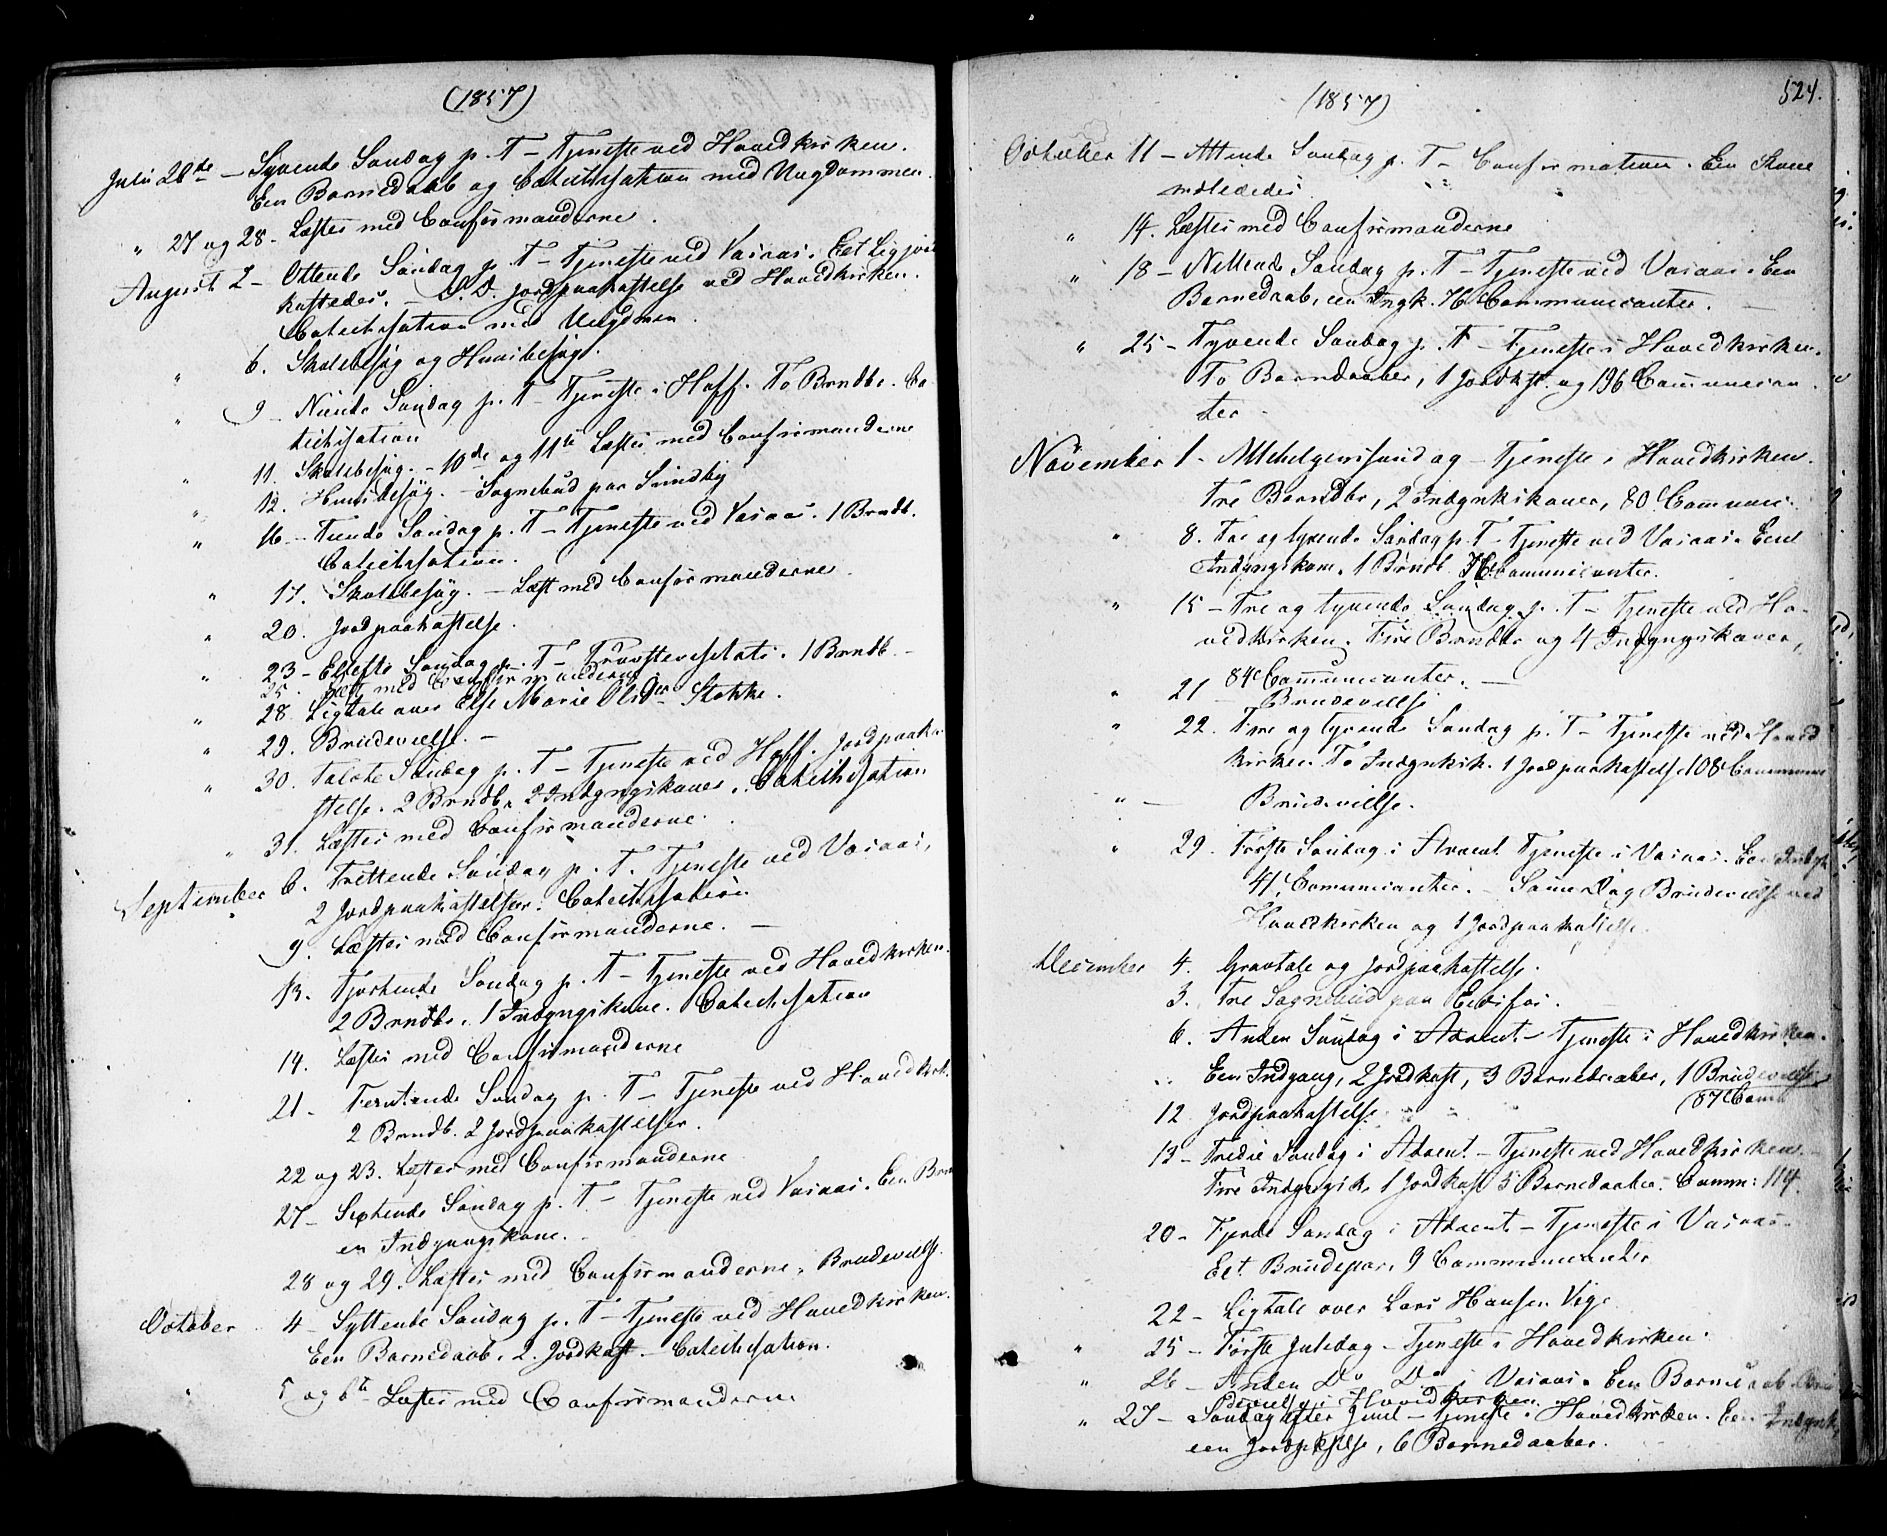 (1857)
Juli 26de - Syvende Søndag p. T - Tjeneste ved Hovedkirken.
Een Barnedaab og Catechisation med Ungdommen.
" 27 og 28 - Læstes med Confirmanderne.
August 2 - Ottende Søndag p. T - Tjeneste ved Vasaas. Eet Lig jord
kastedes. - S. D. Jordpaakastelse ved Hovedkirken.
Catechisation med Ungdmen.
" 6. Skolebesøg og Huusbesøg.
" 9 - Niende Søndag p. T - Tjeneste i Hoff. To Brndb. Ca
techisation
" 11. Skolebesøg. - 10de og 11te Læstes med Confirmanderne
" 12. Huusbesøg. - Sognebud paa Sundby
" 16 - Tiende Søndag p. T - Tjeneste ved Vasaas. 1 Brndb.
Catechisation.
" 17. Skolebesøg. - Læst med Confirmanderne.
" 20. Jordpaakastelse.
" 23 - Ellefte Søndag p. T - Provstevisitats. 1 Brndb. -
25. Læst med Confirmanderne
" 28. Ligtale over Else Marie Olsdr Stokke.
" 29. Brudevielse. -
" 30. Tolvte Søndag p. T - Tjeneste ved Hoff. Jordpaaka
stelse. 2 Brndb. 2 Indgngskoner. Catechisation
" 31. Læstes med Confirmanderne.
September 6. Trettende Søndag p. T. Tjeneste ved Vasaas,
2 Jordpaakastelser. Catechisation
9. Læstes med Confirmanderne. -
13. Fjortende Søndag p. T - Tjeneste ved Hovedkirken.
2 Brndb. 1 Indgngskone. Catechisation
14. Læstes med Confirmanderne
21 - Femtende Søndag p. T - Tjeneste ved Hovedkirk.
2 Brndb. 2 Jordpaakastelser.
22 og 23. Læstes med Confirmanderne
27 - Sextende Søndag p. T - Tjeneste ved Vasaas. Een Brn
en Indgangskone.
28 og 29. Læstes med Confirmanderne. Brudevielse.
October 4 - Syttende Søndag p. T - Tjeneste ved Hovedkirken.
Een Barnedaab. 2. Jordkast - Catechisation.
" 5 og 6te Læstes med Confirmanderne
(1857)
524.
October 11 - Attende Søndag p. T - Confirmation. Een Kone
indlededes
" 14. Læstes med Confirmanderne
" 18 - Nittende Søndag p. T - Tjeneste ved Vasaas. Een
Barnedaab, een Ingk. 76 Communicanter. -
" 25 - Tyvende Søndag p. T - Tjeneste i Hovedkirken.
To Barndaaber, 1 Jordkst. og 196 Communican
ter -
November 1 - Allehelgenssundag - Tjeneste i Hovedkirken.
Tre Barndbr, 2 Indgnkskoner, 80 Commun:
" 8. Een og tyvende Søndag p. T - Tjeneste ved Vasaas. Een
Indgngskone. 1 Brndb. Communicanter.
" 15 - Tre og tyvende Søndag p. T - Tjeneste ved Ho-
vedkirken. Fire Brndbr og 4 Indgngskoner,
84 Communicanter. -
" 21 - Brudevielse
" 22. Fire og tyvende Søndag p. T - Tjeneste ved Hoved
kirken. To Indgnksk. 1 Jordpaakastelse. 108 Commun
" - Brudevielse.
" 29. Første Søndag i Advent. Tjeneste i Vasaas. Een Indgk
41. Comunicanter. - Same Dag Brudevielse ved
Hovedkirken og 1 Jordpaakastelse.
December 4. Gravtale og Jordpaakastelse.
3. Tre Sognebud paa Eidsfos. -
6. Anden Søndag i Advent - Tjeneste i Hovedkirken.
Een Indgang, 2 Jordkast, 3 Barnedaaber, 1 Brudevielse
(87 Comm
12. Jordpaakastelse
13 - Tredie Søndag i Advent - Tjeneste ved Hovedkirken. -
Fire Indgngsk. 1 Jordkast 5 Barnedaaber. Comm: 114.
20 - Fjerde Søndag i Advent - Tjeneste i Vasaas -
Eet Brudepar, 9 Communicanter
22 - Ligtale over Lars Hansen Vige
" 25 - Første Juledag - Tjeneste i Hovedkirken.
" 26 - Anden Do Do i Vasaas. Een Barnedaab.
devielse i Hovedkirken.
" 27 - Søndag efter Juul - Tjeneste i Hovedkirken. Een Indgnk,
een Jordpkstlse, 6 Barnedaaber.